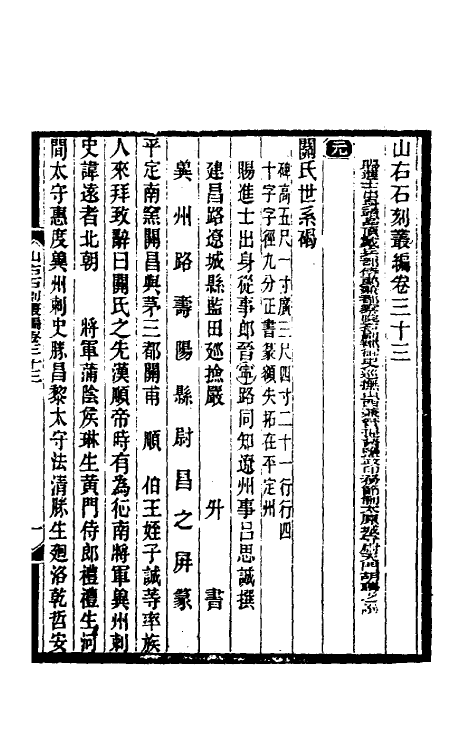 山右石刻叢編卷三十三
賜進士出身誥
元
關氏世系碣
碑高五尺一寸廣三尺四寸二十一行行四
十字字徑九分正書篆額失拓在平定州
賜進士出身從事郎晉寧路同知遼州事呂思誠撰
建昌路遼城縣藍田廵撿嚴 升 書
兾州路壽陽縣尉昌之屏篆
平定南窯關昌與茅三都關甫 順 伯王姪子誠等率族
人來拜致辭曰關氏之先漢順帝時有為征南將軍兾州刺
史諱遠者北朝 將軍蒲陰侯琳生黄門侍郎禮禮生河
間太守惠度兾州刺史勝昌黎太守法清勝生廻洛乾哲安
山右石刻叢編卷三十三
一